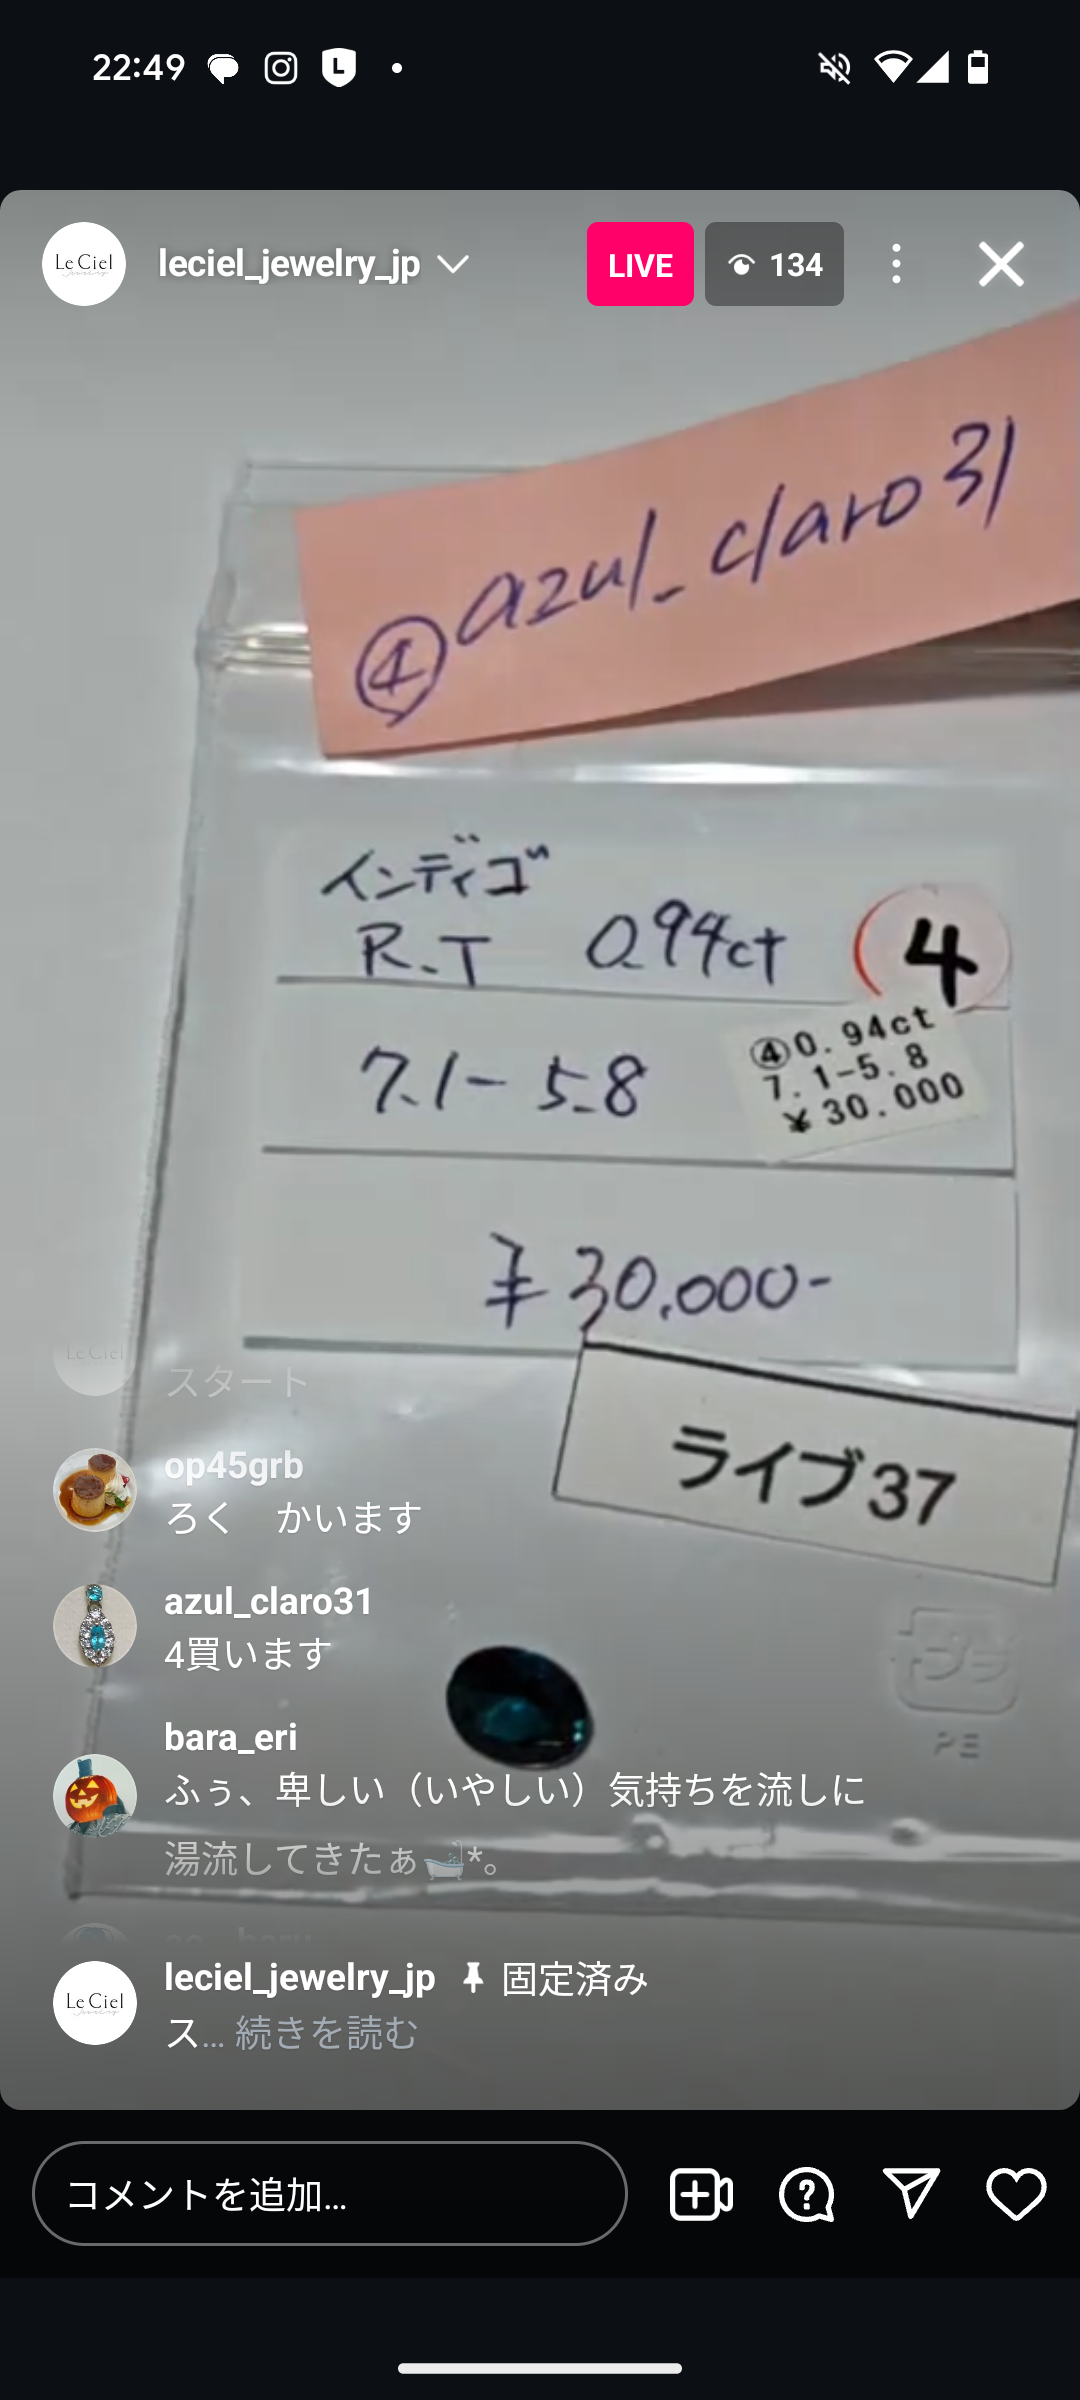 22:49
Le Ciel
leciel_jewelry_jp
LIVE
134
④azul_claro31
インディゴ
R.T 0.94ct
4
④0.94ct
7.1-5.8
¥30.000
7.1-5.8
¥30.000-
ライブ37
プラ
PE
Le Ciel
スタート
op45grb
ろく　かいます
azul_claro31
4買います
bara_eri
ふぅ、卑しい（いやしい）気持ちを流しに
湯流してきたぁ🛁*。
Le Ciel
leciel_jewelry_jp 固定済み
ス... 続きを読む
コメントを追加...